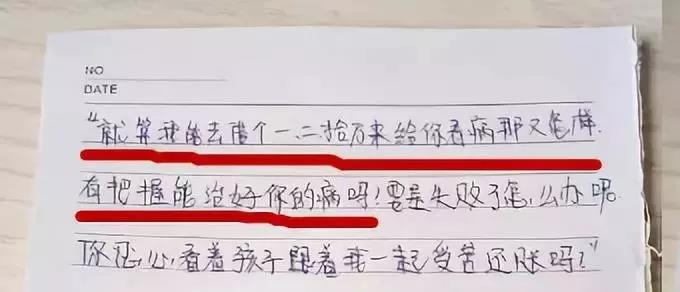 NO
DATE
“就算我能去借个一、二拾万来给你看病那又怎样.
有把握能治好你的病吗?要是失败了怎么办呢
你忍心看着孩子跟着我一起受苦还账吗?”